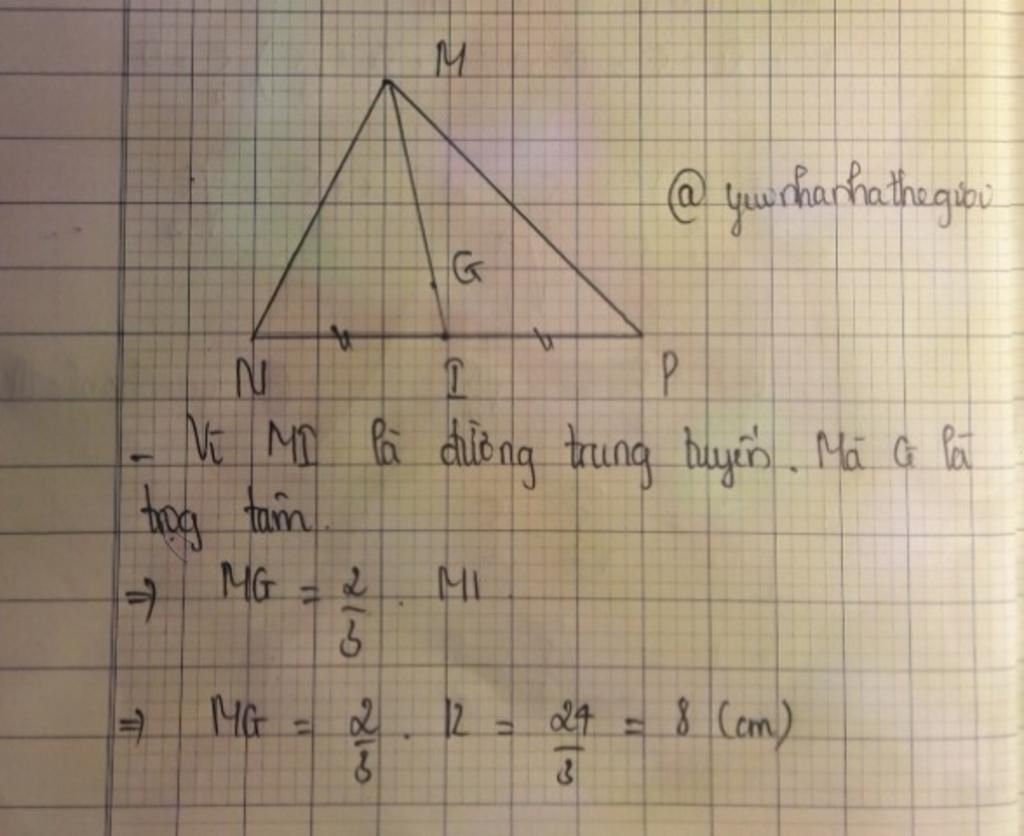 M
@ yuurhanhathegioi
G
N I P
- Vì MI là đường trung tuyến. Mà G là
trọg tâm.
⇒ MG = 2/3 . MI
⇒ MG = 2/3 . 12 = 24/3 = 8 (cm)